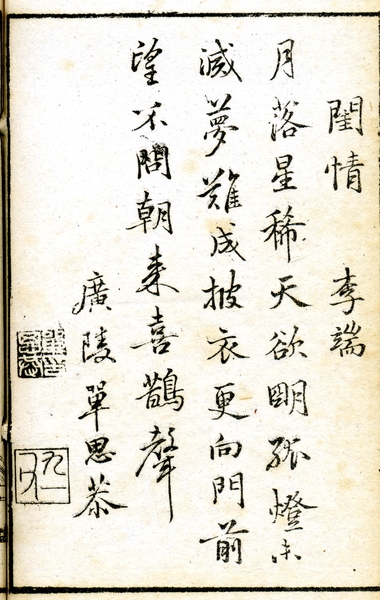 閨情 李端
月落星稀天欲明孤燈未
滅夢難成披衣更向門前
望不問朝来喜鵲聲
廣陵單思恭